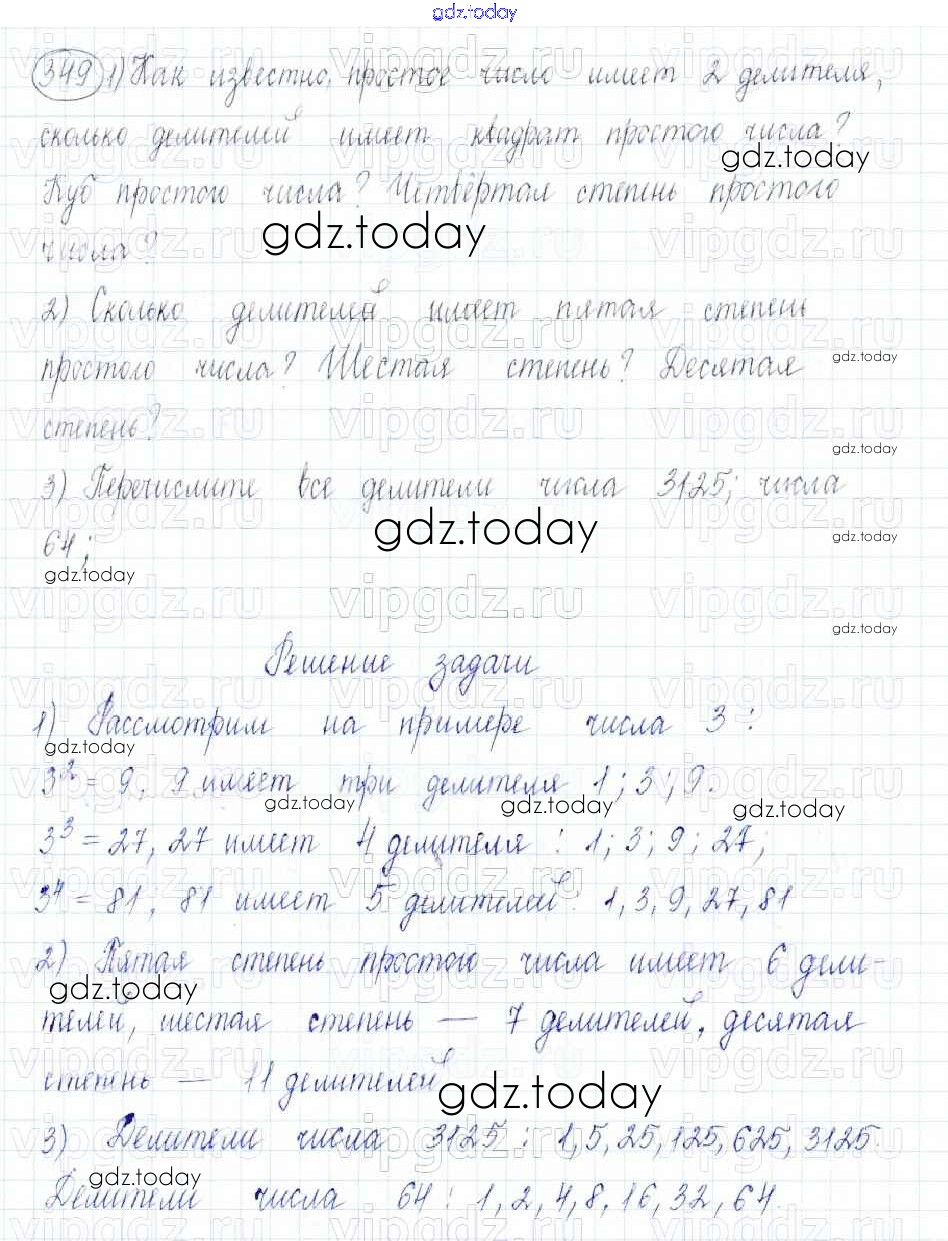 gdz.today
349 1) Как известно, простое число имеет 2 делителя,
сколько делителей имеет квадрат простого числа?
gdz.today
Куб простого числа? Четвёртая степень простого
gdz.today
числа?
2) Сколько делителей имеет пятая степень
простого числа? Шестая степень? Десятая
gdz.today
степень?
gdz.today
3) Перечислите все делители числа 3125; числа
gdz.today
64;
gdz.today
gdz.today
vipgdz.ru vipgdz.ru vipgdz.ru
gdz.today
Решение задачи
1) Рассмотрим на примере числа 3:
gdz.today
3² = 9, 9 имеет три делителя 1; 3; 9.
gdz.today gdz.today gdz.today
3³ = 27, 27 имеет 4 делителя: 1; 3; 9; 27;
3⁴ = 81; 81 имеет 5 делителей: 1, 3, 9, 27, 81
2) Пятая степень простого числа имеет 6 дели-
gdz.today
телей, шестая степень — 7 делителей, десятая
степень — 11 делителей
gdz.today
3) Делители числа 3125: 1, 5, 25, 125, 625, 3125.
gdz.today
Делители числа 64: 1, 2, 4, 8, 16, 32, 64.